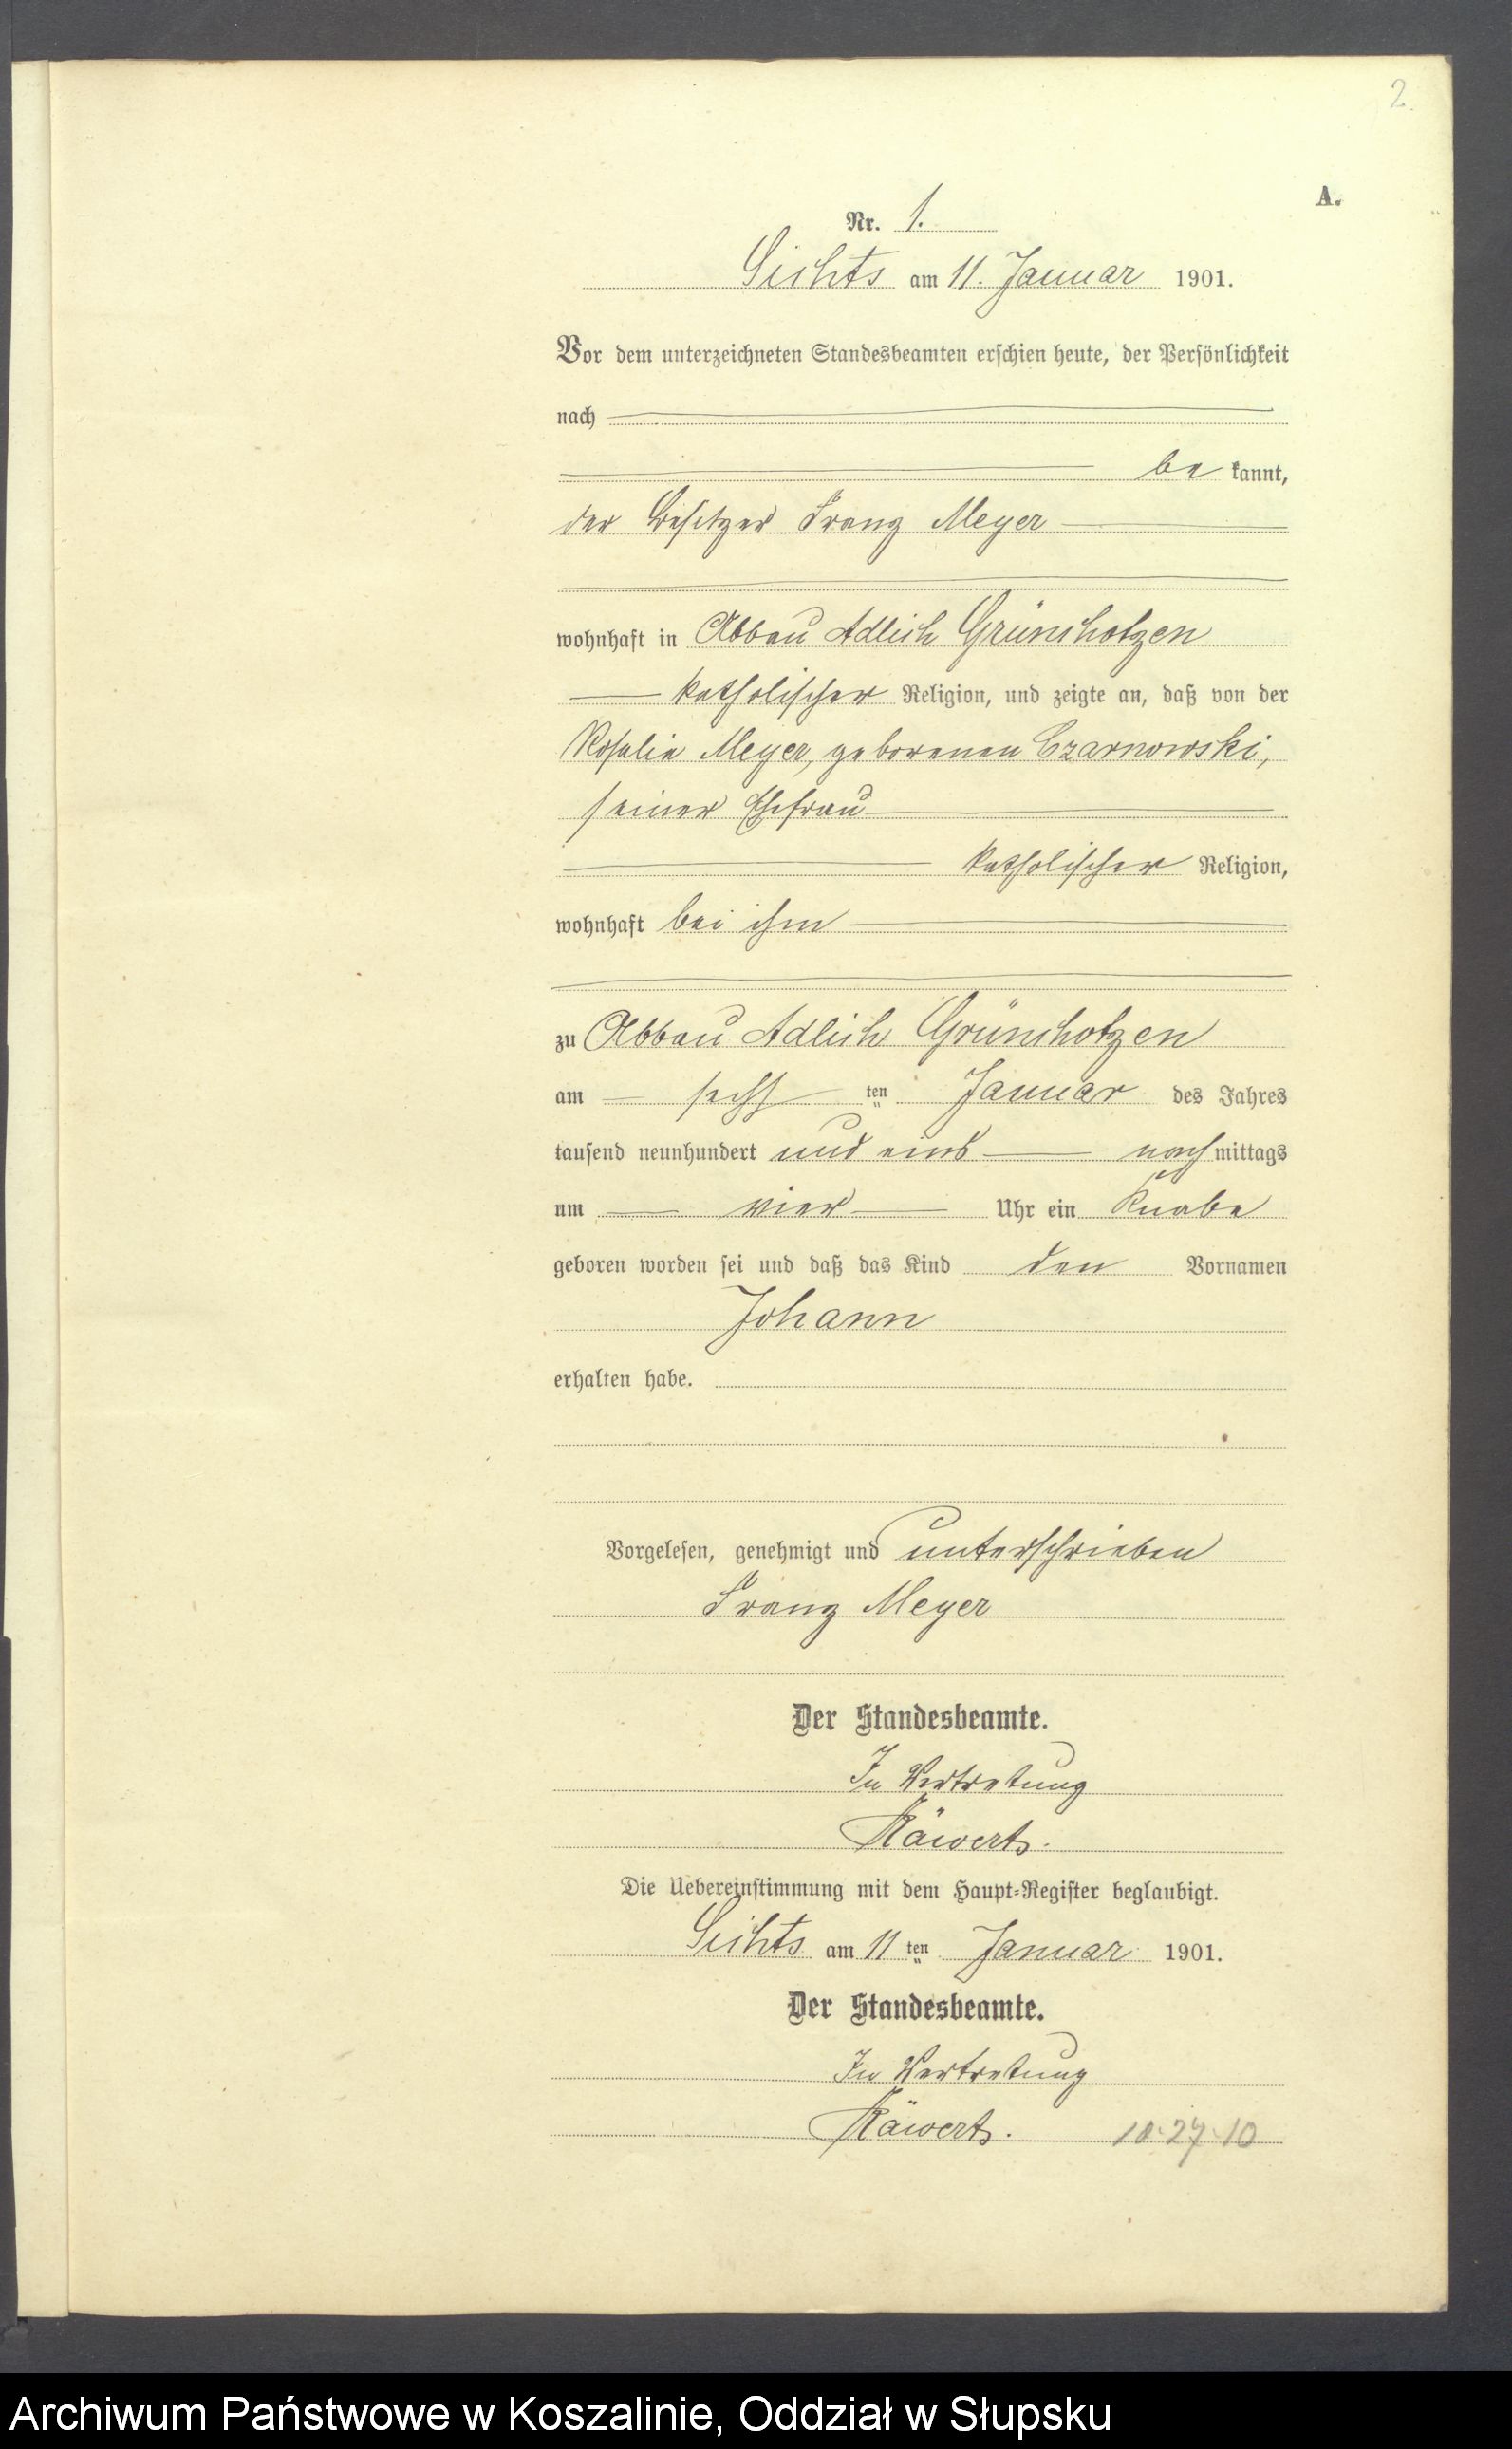 2.
A.
Nr. 1.
Sichts am 11. Januar 1901.
Vor dem unterzeichneten Standesbeamten erschien heute, der Persönlichkeit
nach
be kannt,
der Besitzer Franz Meyer
wohnhaft in Abbau Adlich Grünchotzen
katholischer Religion, und zeigte an, daß von der
Rosalie Meyer, geborenen Czarnowski,
seiner Ehefrau
katholischer Religion,
wohnhaft bei ihm
zu Abbau Adlich Grünchotzen
am sechs ten Januar des Jahres
tausend neunhundert und eins nach mittags
um vier Uhr ein Knabe
geboren worden sei und daß das Kind den Vornamen
Johann
erhalten habe.
Vorgelesen, genehmigt und unterschrieben
Franz Meyer
Der Standesbeamte.
In Vertretung
Käwerts.
Die Uebereinstimmung mit dem Haupt-Register beglaubigt.
Sichts am 11 ten Januar 1901.
Der Standesbeamte.
In Vertretung
Käwerts.
Archiwum Państwowe w Koszalinie, Oddział w Słupsku